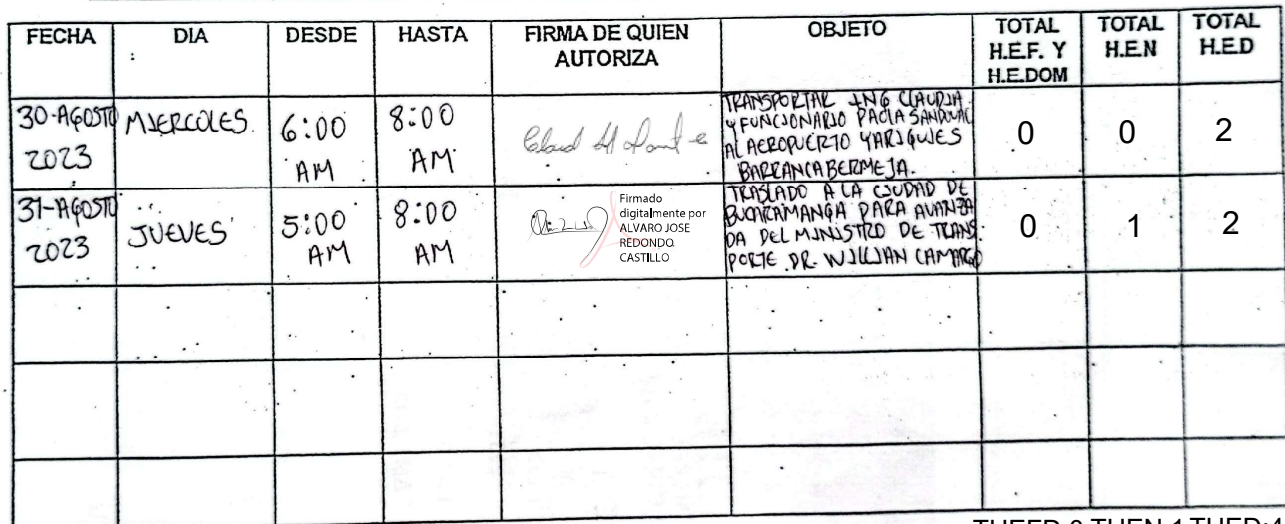 FECHA DIA : DESDE HASTA FIRMA DE QUIEN AUTORIZA OBJETO TOTAL H.E.F. Y H.E.DOM TOTAL H.E.N TOTAL H.E.D
30-AGOSTO 2023
MIERCOLES.
6:00 AM
8:00 AM
TRANSPORTAR ING CLAUDIA
Y FUNCIONARIO PAOLA SANDOVAL
AL AEROPUERTO YARIGUIES
BARRANCABERMEJA.
0
0
2
31-AGOSTO
2023
JUEVES
5:00
AM
8:00
AM
Firmado
digitalmente por
ALVARO JOSE
REDONDO
CASTILLO
TRASLADO A LA CIUDAD DE
BUCARAMANGA PARA AVANZA
DA DEL MINISTRO DE TRANS.
PORTE DR. WILLIAN CAMARGO
0
1
2